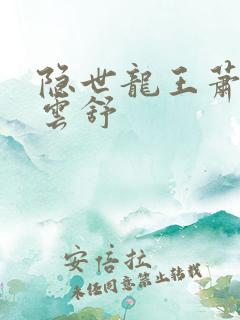 隐世龍王蕭
雲舒
安倍拉
未经同意禁止转载